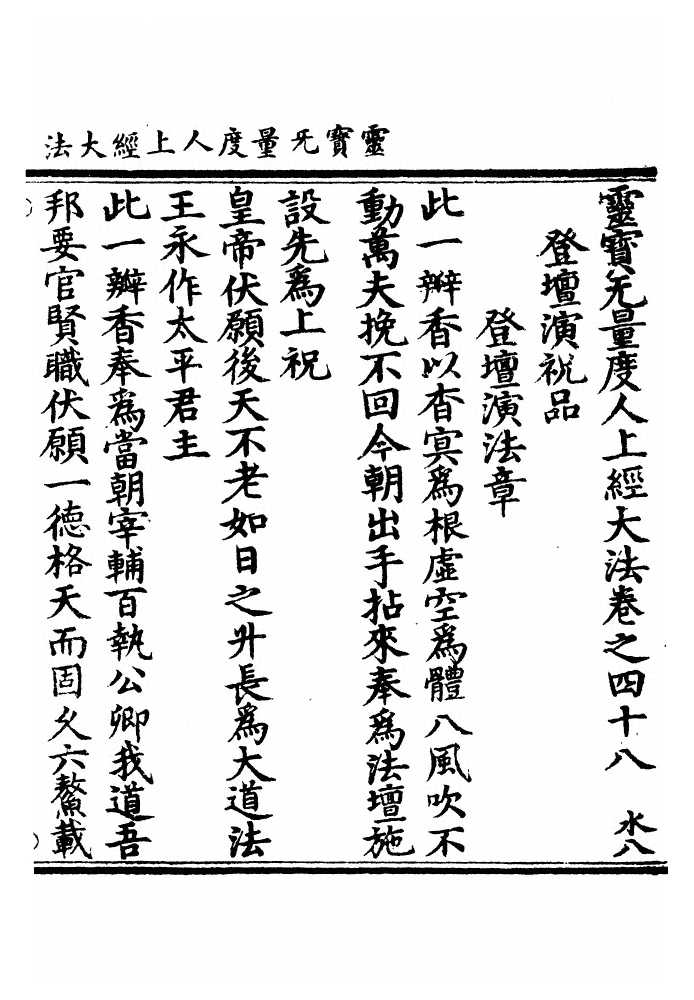 靈寶旡量度人上經大法
靈寶旡量度人上經大法卷之四十八 水八
登壇演祝品
登壇演法章
此一瓣香以杳冥爲根虛空爲體八風吹不
動萬夫挽不回今朝出手拈來奉爲法壇施
設先爲上祝
皇帝伏願後天不老如日之升長爲大道法
王永作太平君主
此一瓣香奉爲當朝宰輔百執公卿我道吾
邦要官賢職伏願一德格天而固久六鰲載